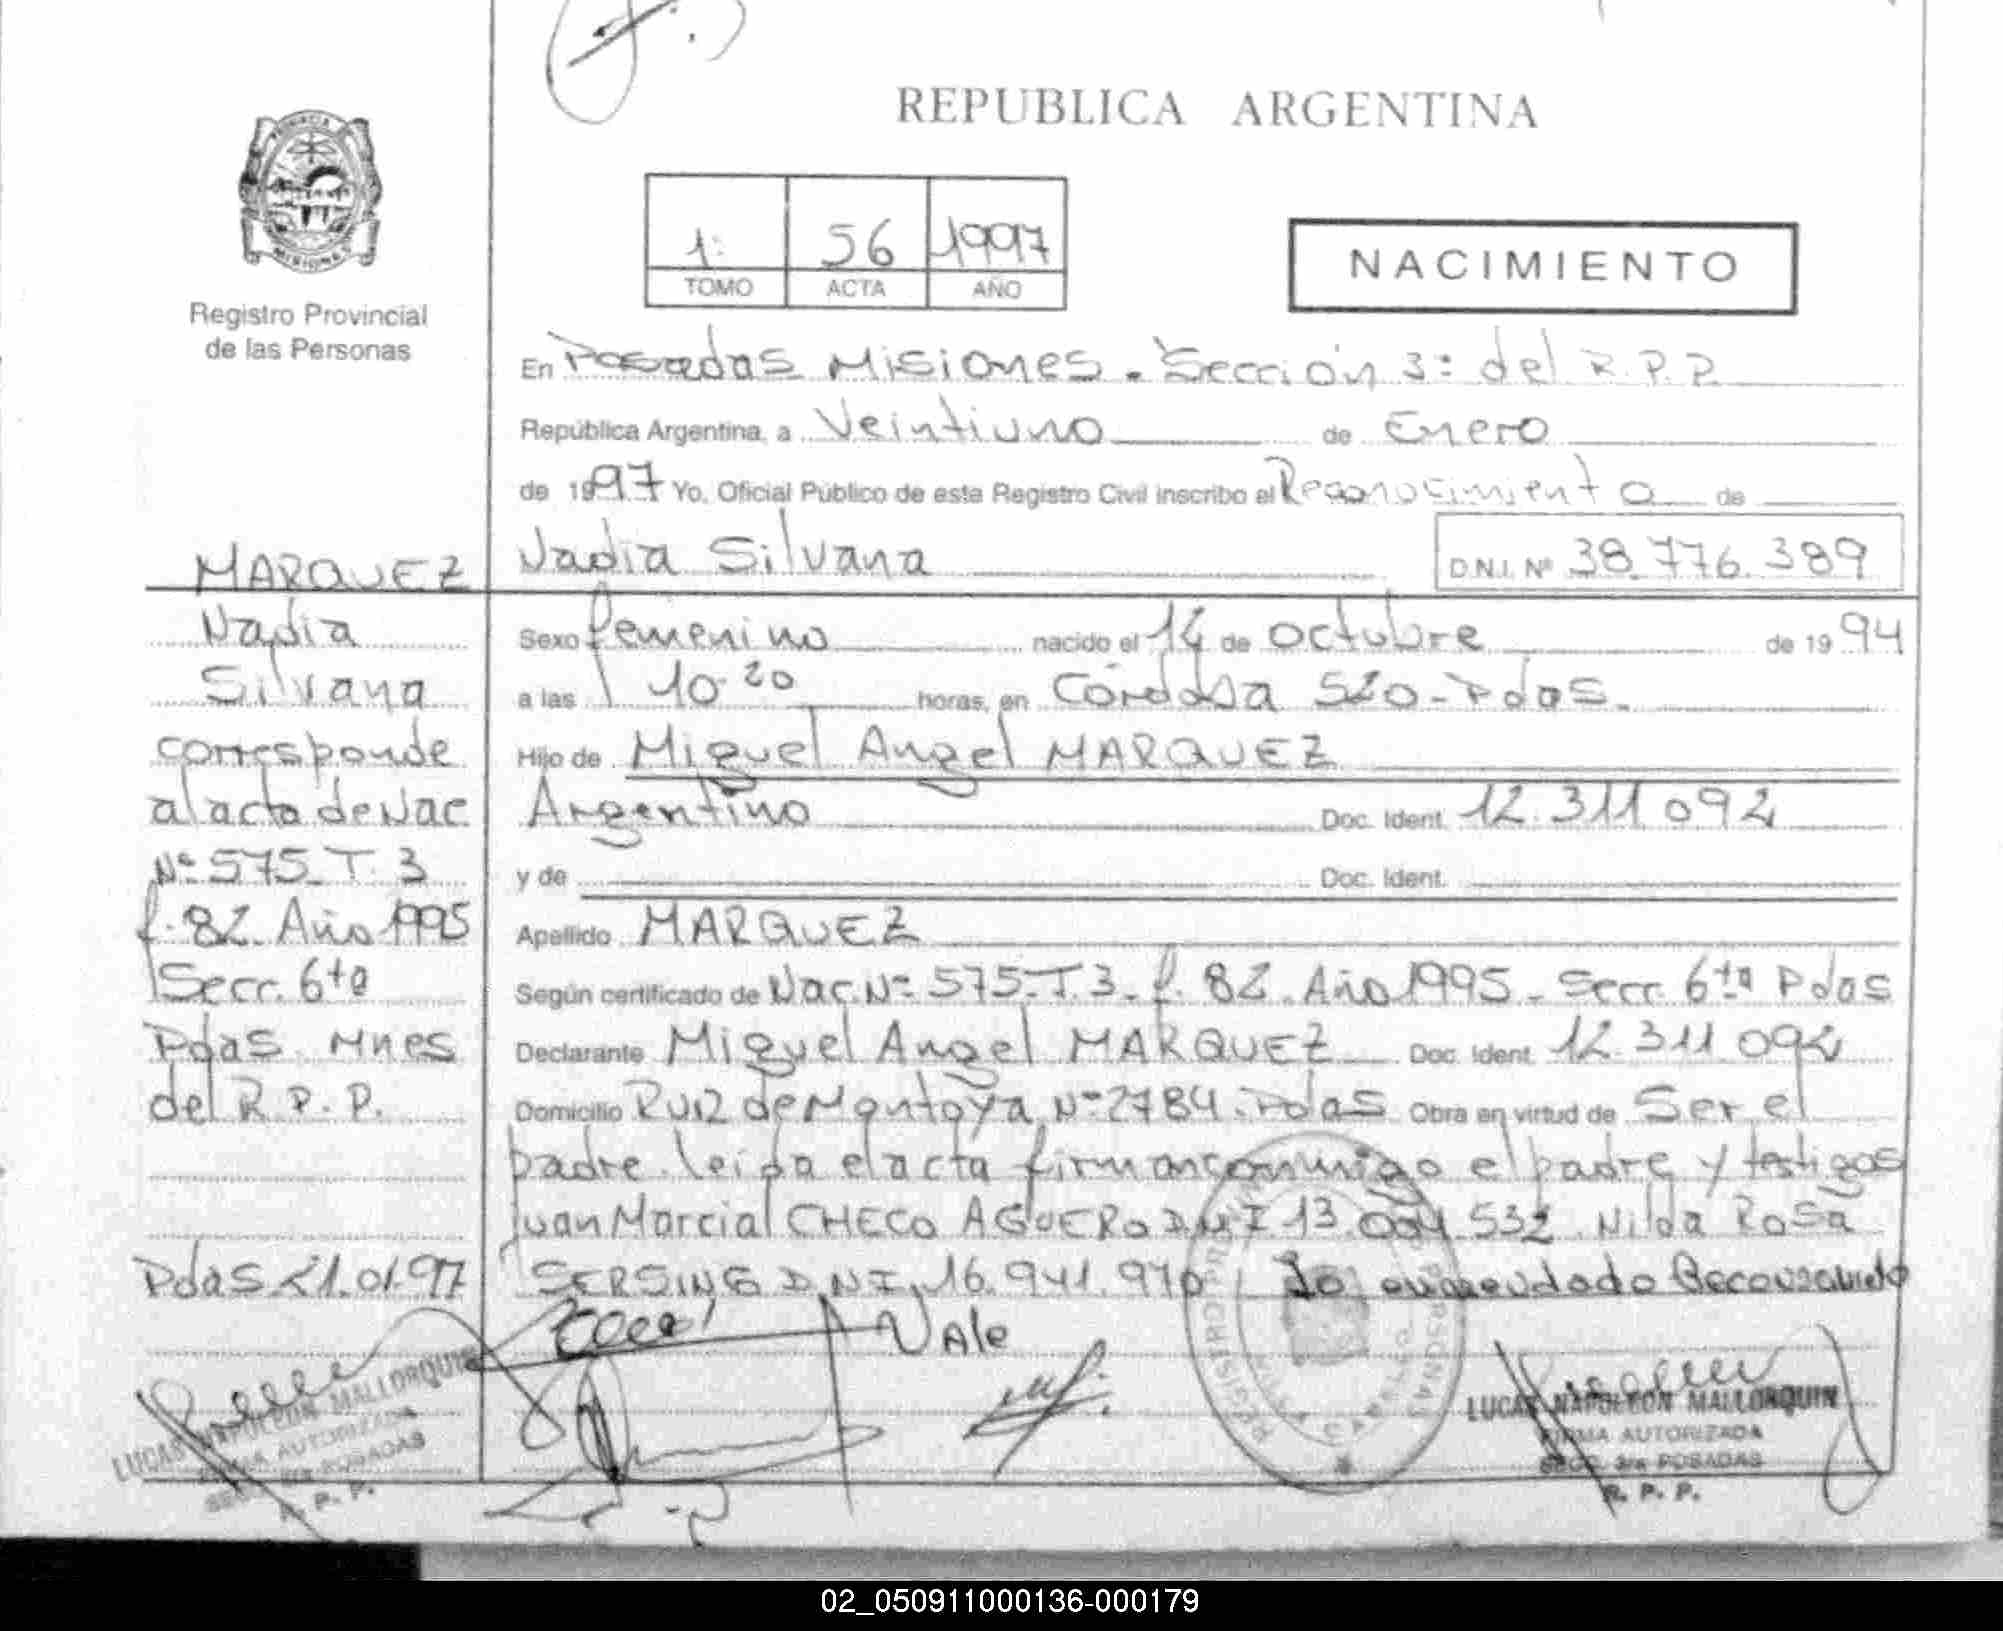 REPUBLICA ARGENTINA
1: 56 1997
TOMO ACTA AÑO
NACIMIENTO
Registro Provincial
de las Personas
MARQUEZ
Nadia
Silvana
corresponde
al acta de Nac
Nº 575 T. 3
f. 82 Año 1995
Secc. 6ta
Pdas Mnes
del R.P.P.
Pdas 21.01.97
LUCAS NAPOLEON MALLORQUIN
FIRMA AUTORIZADA
SECC. 3ra POSADAS
R. P. P.
En Posadas Misiones. Sección 3: del R.P.P.
República Argentina, a Veintiuno de Enero
de 1997 Yo, Oficial Público de este Registro Civil inscribo el Reconocimiento de
Nadia Silvana D.N.I. Nº 38.776.389
Sexo femenino nacido el 14 de Octubre de 1994
a las 10:20 horas, en Córdoba 520-Pdas.
Hijo de Miguel Angel MARQUEZ
Argentino Doc. Ident. 12.311.092
y de Doc. Ident.
Apellido MARQUEZ
Según certificado de Nac. Nº 575-T.3-f. 82. Año 1995- Secc. 6ta Pdas
Declarante Miguel Angel MARQUEZ Doc. Ident. 12.311.092
Domicilio Ruiz de Montoya Nº 2784. Pdas Obra en virtud de Ser el
padre. leida el acta firman conmigo el padre y testigos
Juan Marcial CHECO AGUERO D.N.I 13.004.532 Nilda Rosa
SERSING D.N.I. 16.941.970 Lo enmendado Reconocimiento
Vale
LUCAS NAPOLEON MALLORQUIN
FIRMA AUTORIZADA
SECC. 3ra POSADAS
R. P. P.
02_050911000136-000179